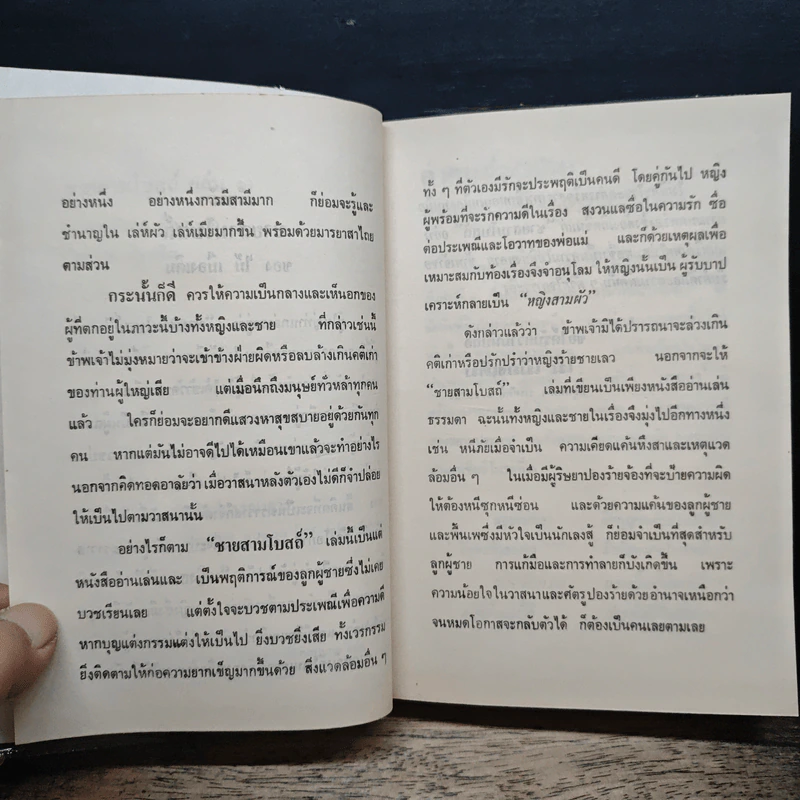 อย่างหนึ่ง อย่างหนึ่งการมีสามีมาก ก็ย่อมจะรู้และ
ชำนาญใน เล่ห์ผัว เล่ห์เมียมากขึ้น พร้อมด้วยมารยาสาไถย
ตามส่วน
กระนั้นก็ดี ควรให้ความเป็นกลางและเห็นอกของ
ผู้ที่ตกอยู่ในภาวะนี้บ้างทั้งหญิงและชาย ที่กล่าวเช่นนี้
ข้าพเจ้าไม่มุ่งหมายว่าจะเข้าข้างฝ่ายผิดหรือลบล้างเกินคติเก่า
ของท่านผู้ใหญ่เสีย แต่เมื่อนึกถึงมนุษย์ทั่วหล้าทุกคน
แล้ว ใครก็ย่อมจะอยากดีแสวงหาสุขสบายอยู่ด้วยกันทุก
คน หากแต่มันไม่อาจดีไปได้เหมือนเขาแล้วจะทำอย่างไร
นอกจากคิดทอดอาลัยว่า เมื่อวาสนาหลังตัวเองไม่ดีก็จำปล่อย
ให้เป็นไปตามวาสนานั้น
อย่างไรก็ตาม “ชายสามโบสถ์” เล่มนี้เป็นแต่
หนังสืออ่านเล่นและ เป็นพฤติการณ์ของลูกผู้ชายซึ่งไม่เคย
บวชเรียนเลย แต่ตั้งใจจะบวชตามประเพณีเพื่อความดี
หากบุญแต่งกรรมแต่งให้เป็นไป ยิ่งบวชยิ่งเสีย ทั้งเวรกรรม
ยิ่งติดตามให้ก่อความยากเข็ญมากขึ้นด้วย สิ่งแวดล้อมอื่น ๆ
ทั้ง ๆ ที่ตัวเองมีรักจะประพฤติเป็นคนดี โดยคู่กันไป หญิง
ผู้พร้อมที่จะรักความดีในเรื่อง สงวนแลซื่อในความรัก ซื่อ
ต่อประเพณีและโอวาทของพ่อแม่ และก็ด้วยเหตุผลเพื่อ
เหมาะสมกับท้องเรื่องจึงจำอนุโลม ให้หญิงนั้นเป็น ผู้รับบาป
เคราะห์กลายเป็น “หญิงสามผัว”
ดังกล่าวแล้วว่า ข้าพเจ้ามิได้ปรารถนาจะล่วงเกิน
คติเก่าหรือปรักปรำว่าหญิงร้ายชายเลว นอกจากจะให้
“ชายสามโบสถ์” เล่มที่เขียนเป็นเพียงหนังสืออ่านเล่น
ธรรมดา ฉะนั้นทั้งหญิงและชายในเรื่องจึงมุ่งไปอีกทางหนึ่ง
เช่น หนีภัยเมื่อจำเป็น ความเคียดแค้นหึงสาและเหตุแวด
ล้อมอื่น ๆ ในเมื่อมีผู้ริษยาปองร้ายจ้องที่จะป้ายความผิด
ให้ต้องหนีซุกหนีซ่อน และด้วยความแค้นของลูกผู้ชาย
และพื้นเพซึ่งมีหัวใจเป็นนักเลงสู้ ก็ย่อมจำเป็นที่สุดสำหรับ
ลูกผู้ชาย การแก้มือและการทำลายก็บังเกิดขึ้น เพราะ
ความน้อยใจในวาสนาและศัตรูปองร้ายด้วยอำนาจเหนือกว่า
จนหมดโอกาสจะกลับตัวได้ ก็ต้องเป็นคนเลยตามเลย